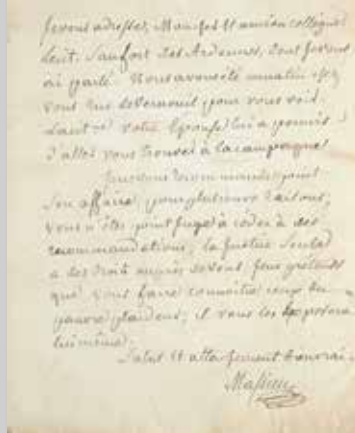 Je vous adresse, Mon cher et ancien collègue
Lecit. Saufort des Ardennes, dont je vous
ai parlé. Nous avons été un matin chez
vous rue de Verneuil pour vous voir.
votre Epouse lui a permis
d'aller vous trouver à la campagne
Je ne vous recommande point
Son affaire, pour plusieurs raisons;
vous n'êtes point juge à céder à des
recommandations; la justice seule
a des droits auprès de vous. Je ne prétends
que vous faire connaître ceux du
pauvre plaideur; il vous les exposera
lui même.
Salut et attachement
Massieu